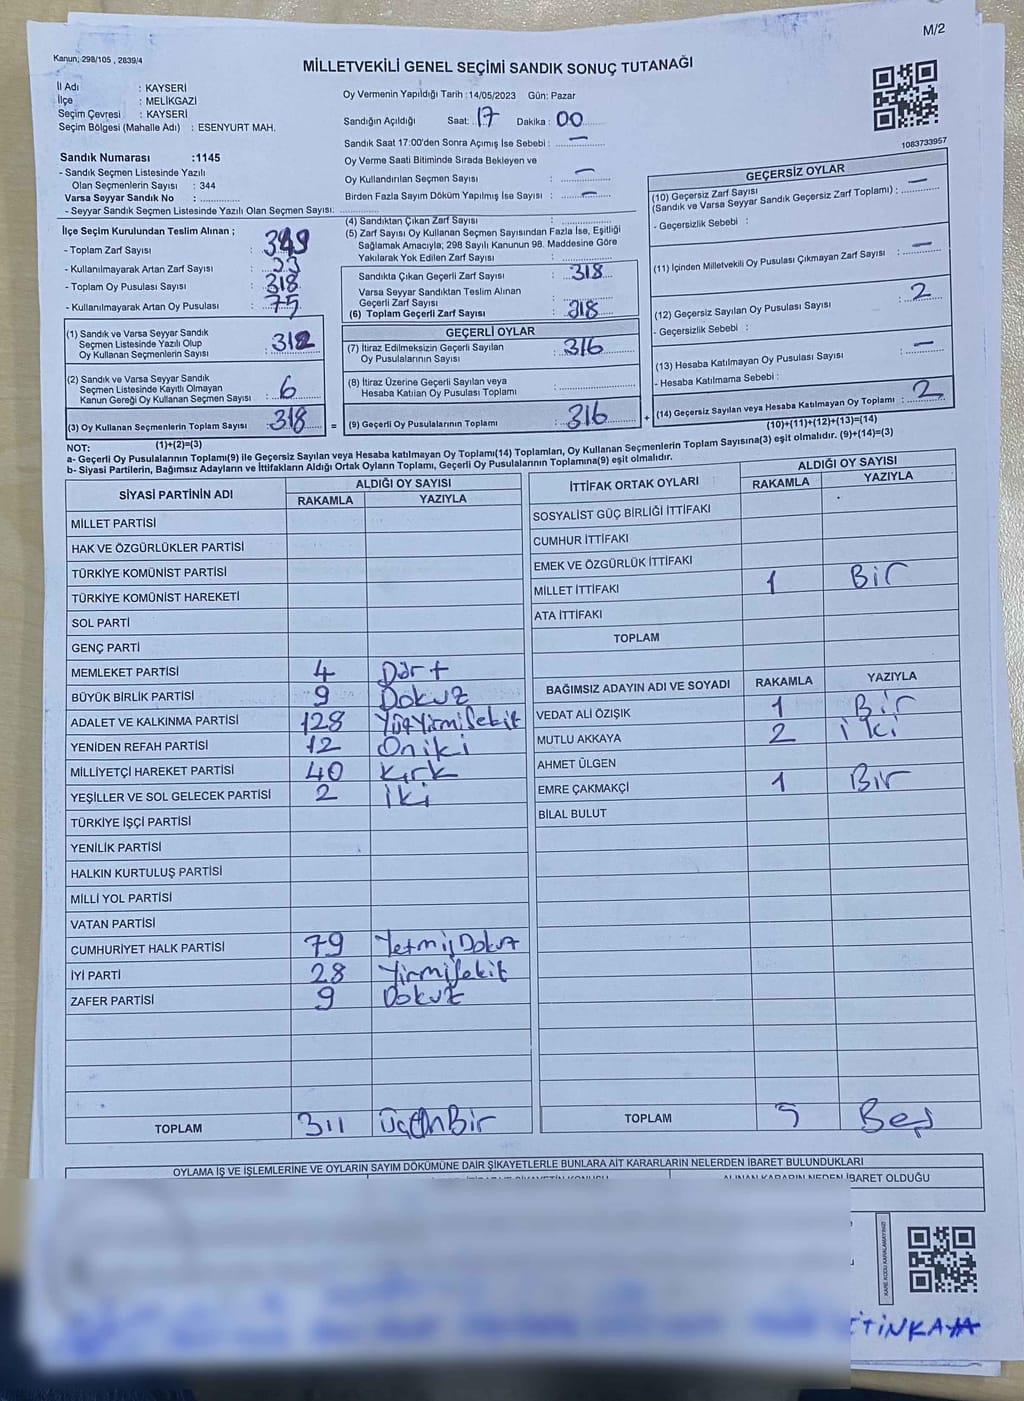 M/2
Kanun; 298/105 , 2839/4
MİLLETVEKİLİ GENEL SEÇİMİ SANDIK SONUÇ TUTANAĞI
İl Adı : KAYSERİ
İlçe : MELİKGAZİ
Seçim Çevresi : KAYSERİ
Seçim Bölgesi (Mahalle Adı) : ESENYURT MAH.
Oy Vermenin Yapıldığı Tarih :14/05/2023 Gün: Pazar
Sandığın Açıldığı Saat: 17 Dakika : 00
Sandık Saat 17:00'den Sonra Açımış İse Sebebi : —
Oy Verme Saati Bitiminde Sırada Bekleyen ve
Oy Kullandırılan Seçmen Sayısı : —
Birden Fazla Sayım Döküm Yapılmış İse Sayısı : —
1083733957
Sandık Numarası :1145
- Sandık Seçmen Listesinde Yazılı
Olan Seçmenlerin Sayısı : 344
Varsa Seyyar Sandık No :
- Seyyar Sandık Seçmen Listesinde Yazılı Olan Seçmen Sayısı:
İlçe Seçim Kurulundan Teslim Alınan ;
- Toplam Zarf Sayısı : 349
- Kullanılmayarak Artan Zarf Sayısı : 33
- Toplam Oy Pusulası Sayısı : 318
- Kullanılmayarak Artan Oy Pusulası : 75
(1) Sandık ve Varsa Seyyar Sandık
Seçmen Listesinde Yazılı Olup
Oy Kullanan Seçmenlerin Sayısı : 312
(2) Sandık ve Varsa Seyyar Sandık
Seçmen Listesinde Kayıtlı Olmayan
Kanun Gereği Oy Kullanan Seçmen Sayısı : 6
(3) Oy Kullanan Seçmenlerin Toplam Sayısı : 318
(1)+(2)=(3)
(4) Sandıktan Çıkan Zarf Sayısı :
(5) Zarf Sayısı Oy Kullanan Seçmen Sayısından Fazla İse, Eşitliği
Sağlamak Amacıyla; 298 Sayılı Kanunun 98. Maddesine Göre
Yakılarak Yok Edilen Zarf Sayısı :
Sandıkta Çıkan Geçerli Zarf Sayısı : 318
Varsa Seyyar Sandıktan Teslim Alınan
Geçerli Zarf Sayısı :
(6) Toplam Geçerli Zarf Sayısı : 318
GEÇERLİ OYLAR
(7) İtiraz Edilmeksizin Geçerli Sayılan
Oy Pusulalarının Sayısı : 316
(8) İtiraz Üzerine Geçerli Sayılan veya
Hesaba Katılan Oy Pusulası Toplamı :
= (9) Geçerli Oy Pusulalarının Toplamı : 316
GEÇERSİZ OYLAR
(10) Geçersiz Zarf Sayısı
(Sandık ve Varsa Seyyar Sandık Geçersiz Zarf Toplamı) : —
- Geçersizlik Sebebi :
(11) İçinden Milletvekili Oy Pusulası Çıkmayan Zarf Sayısı : —
(12) Geçersiz Sayılan Oy Pusulası Sayısı : 2
- Geçersizlik Sebebi :
(13) Hesaba Katılmayan Oy Pusulası Sayısı : —
- Hesaba Katılmama Sebebi :
+ (14) Geçersiz Sayılan veya Hesaba Katılmayan Oy Toplamı : 2
(10)+(11)+(12)+(13)=(14)
NOT:
a- Geçerli Oy Pusulalarının Toplamı(9) ile Geçersiz Sayılan veya Hesaba katılmayan Oy Toplamı(14) Toplamları, Oy Kullanan Seçmenlerin Toplam Sayısına(3) eşit olmalıdır. (9)+(14)=(3)
b- Siyasi Partilerin, Bağımsız Adayların ve İttifakların Aldığı Ortak Oyların Toplamı, Geçerli Oy Pusulalarının Toplamına(9) eşit olmalıdır.
SİYASİ PARTİNİN ADI ALDIĞI OY SAYISI
RAKAMLA YAZIYLA
MİLLET PARTİSİ
HAK VE ÖZGÜRLÜKLER PARTİSİ
TÜRKİYE KOMÜNİST PARTİSİ
TÜRKİYE KOMÜNİST HAREKETİ
SOL PARTİ
GENÇ PARTİ
MEMLEKET PARTİSİ 4 Dört
BÜYÜK BİRLİK PARTİSİ 9 Dokuz
ADALET VE KALKINMA PARTİSİ 128 YüzYirmiSekiz
YENİDEN REFAH PARTİSİ 12 Oniki
MİLLİYETÇİ HAREKET PARTİSİ 40 Kırk
YEŞİLLER VE SOL GELECEK PARTİSİ 2 İki
TÜRKİYE İŞÇİ PARTİSİ
YENİLİK PARTİSİ
HALKIN KURTULUŞ PARTİSİ
MİLLİ YOL PARTİSİ
VATAN PARTİSİ
CUMHURİYET HALK PARTİSİ 79 YetmişDokuz
İYİ PARTİ 28 YirmiSekiz
ZAFER PARTİSİ 9 Dokuz
TOPLAM 311 ÜçOnBir
İTTİFAK ORTAK OYLARI ALDIĞI OY SAYISI
RAKAMLA YAZIYLA
SOSYALİST GÜÇ BİRLİĞİ İTTİFAKI
CUMHUR İTTİFAKI
EMEK VE ÖZGÜRLÜK İTTİFAKI
MİLLET İTTİFAKI 1 Bir
ATA İTTİFAKI
TOPLAM
BAĞIMSIZ ADAYIN ADI VE SOYADI RAKAMLA YAZIYLA
VEDAT ALİ ÖZIŞIK 1 Bir
MUTLU AKKAYA 2 İki
AHMET ÜLGEN
EMRE ÇAKMAKÇİ 1 Bir
BİLAL BULUT
TOPLAM 5 Beş
OYLAMA İŞ VE İŞLEMLERİNE VE OYLARIN SAYIM DÖKÜMÜNE DAİR ŞİKAYETLERLE BUNLARA AİT KARARLARIN NELERDEN İBARET BULUNDUKLARI
ALINAN KARARIN NEDEN İBARET OLDUĞU
KARE KODU KARALAMAYINIZ!
TİNKAYA